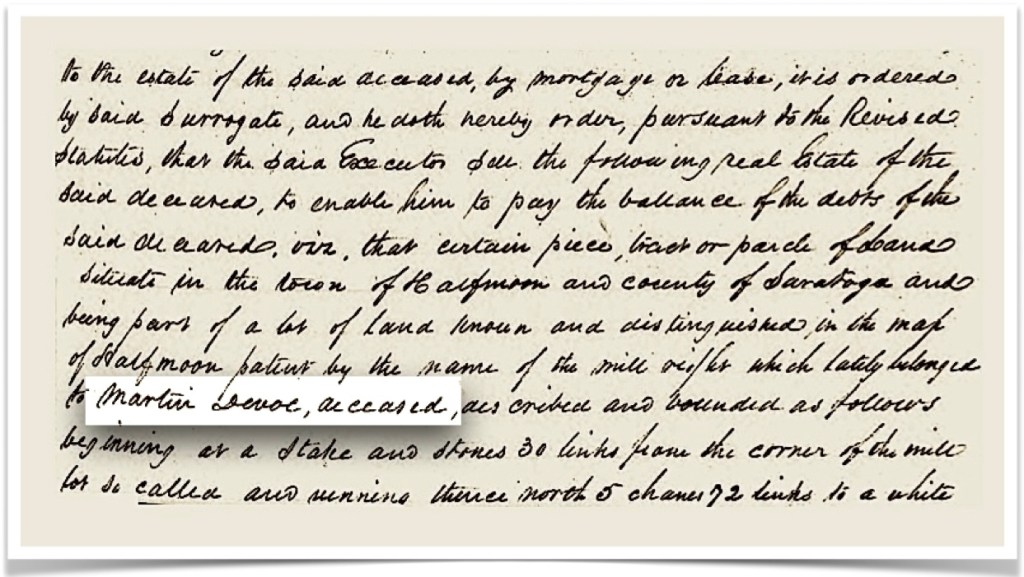 to the estate of the said deceased, by mortgage or lease, it is ordered
by said Surrogate, and he doth hereby order, pursuant to the Revised
Statutes, that the said Executor sell the following real Estate of the
said deceased, to enable him to pay the ballance of the debts of the
said deceased, viz, that certain piece, tract or parcle of Land
Situate in the town of Halfmoon and county of Saratoga and
being part of a lot of land known and distinguished, in the map
of Halfmoon patent by the name of the mill right which lately belonged
to Martin Devoe, deceased, described and bounded as follows
beginning at a Stake and stones 30 links from the corner of the mill
lot so called and running thence north 5 chanes 72 links to a white